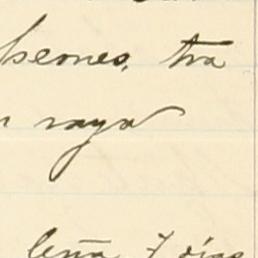 peones, tra
raya
leña 7 días